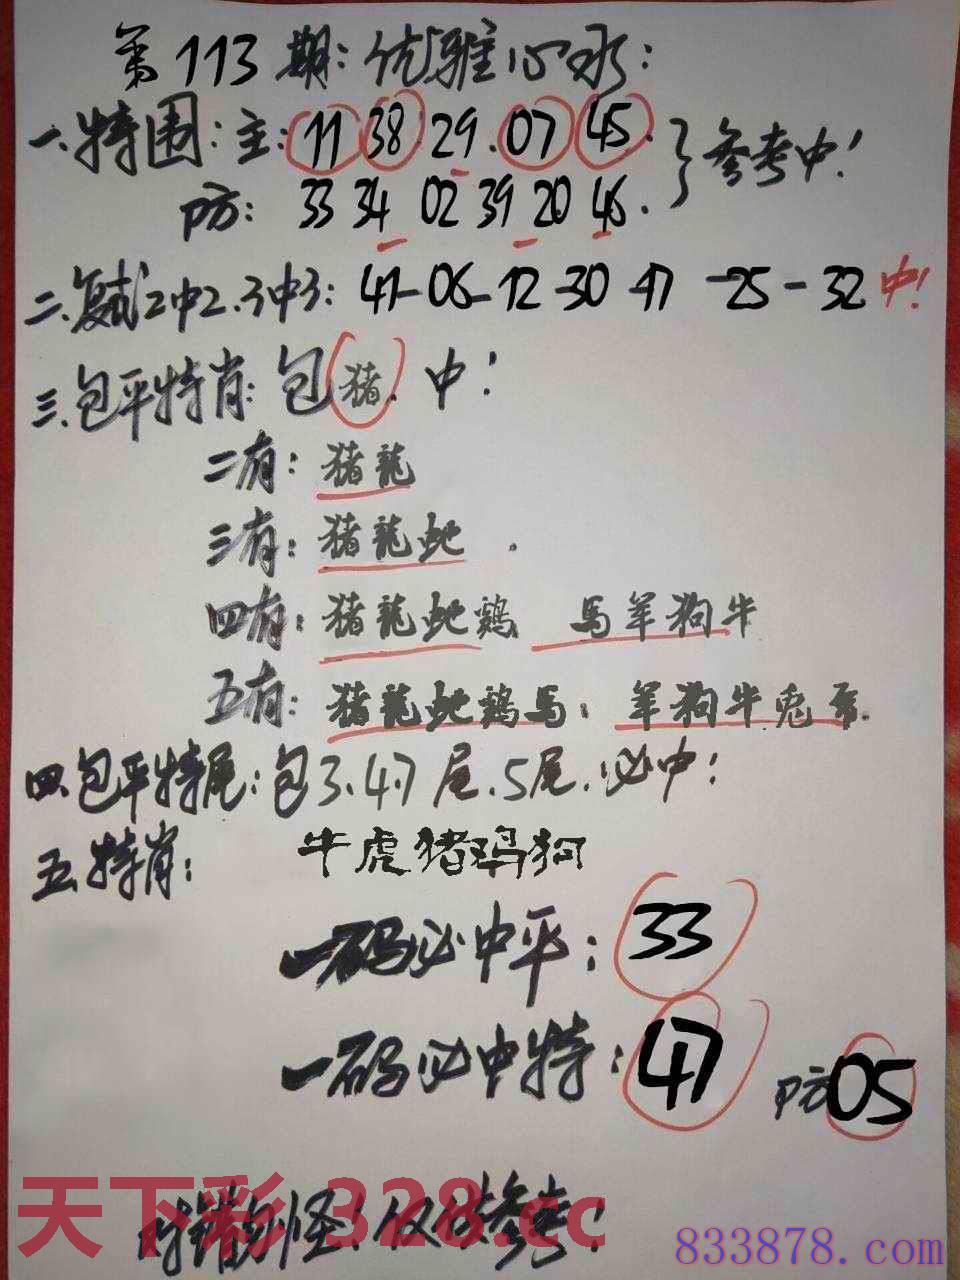 第113期:优雅心水:
一.特围:主:11 38 29.07 45.
防: 33 34 02 39 20 46.
参考中!
二.复式2中2.3中3: 41-06-12-30-17-25-32 中!
三.包平特肖:包猪.中!
二有:猪龍
三有:猪龍虵.
四有:猪龍虵鷄 馬羊狗牛
五有:猪龍虵鷄馬: 羊狗牛兎
四.包平特尾:包3.4.7尾.5尾.必中!
五.特肖: 牛虎猪鸡狗
一码必中平: 33
一码必中特: 47 防05
错勿怪!仅供参考!
天下彩 328.cc
833878.com